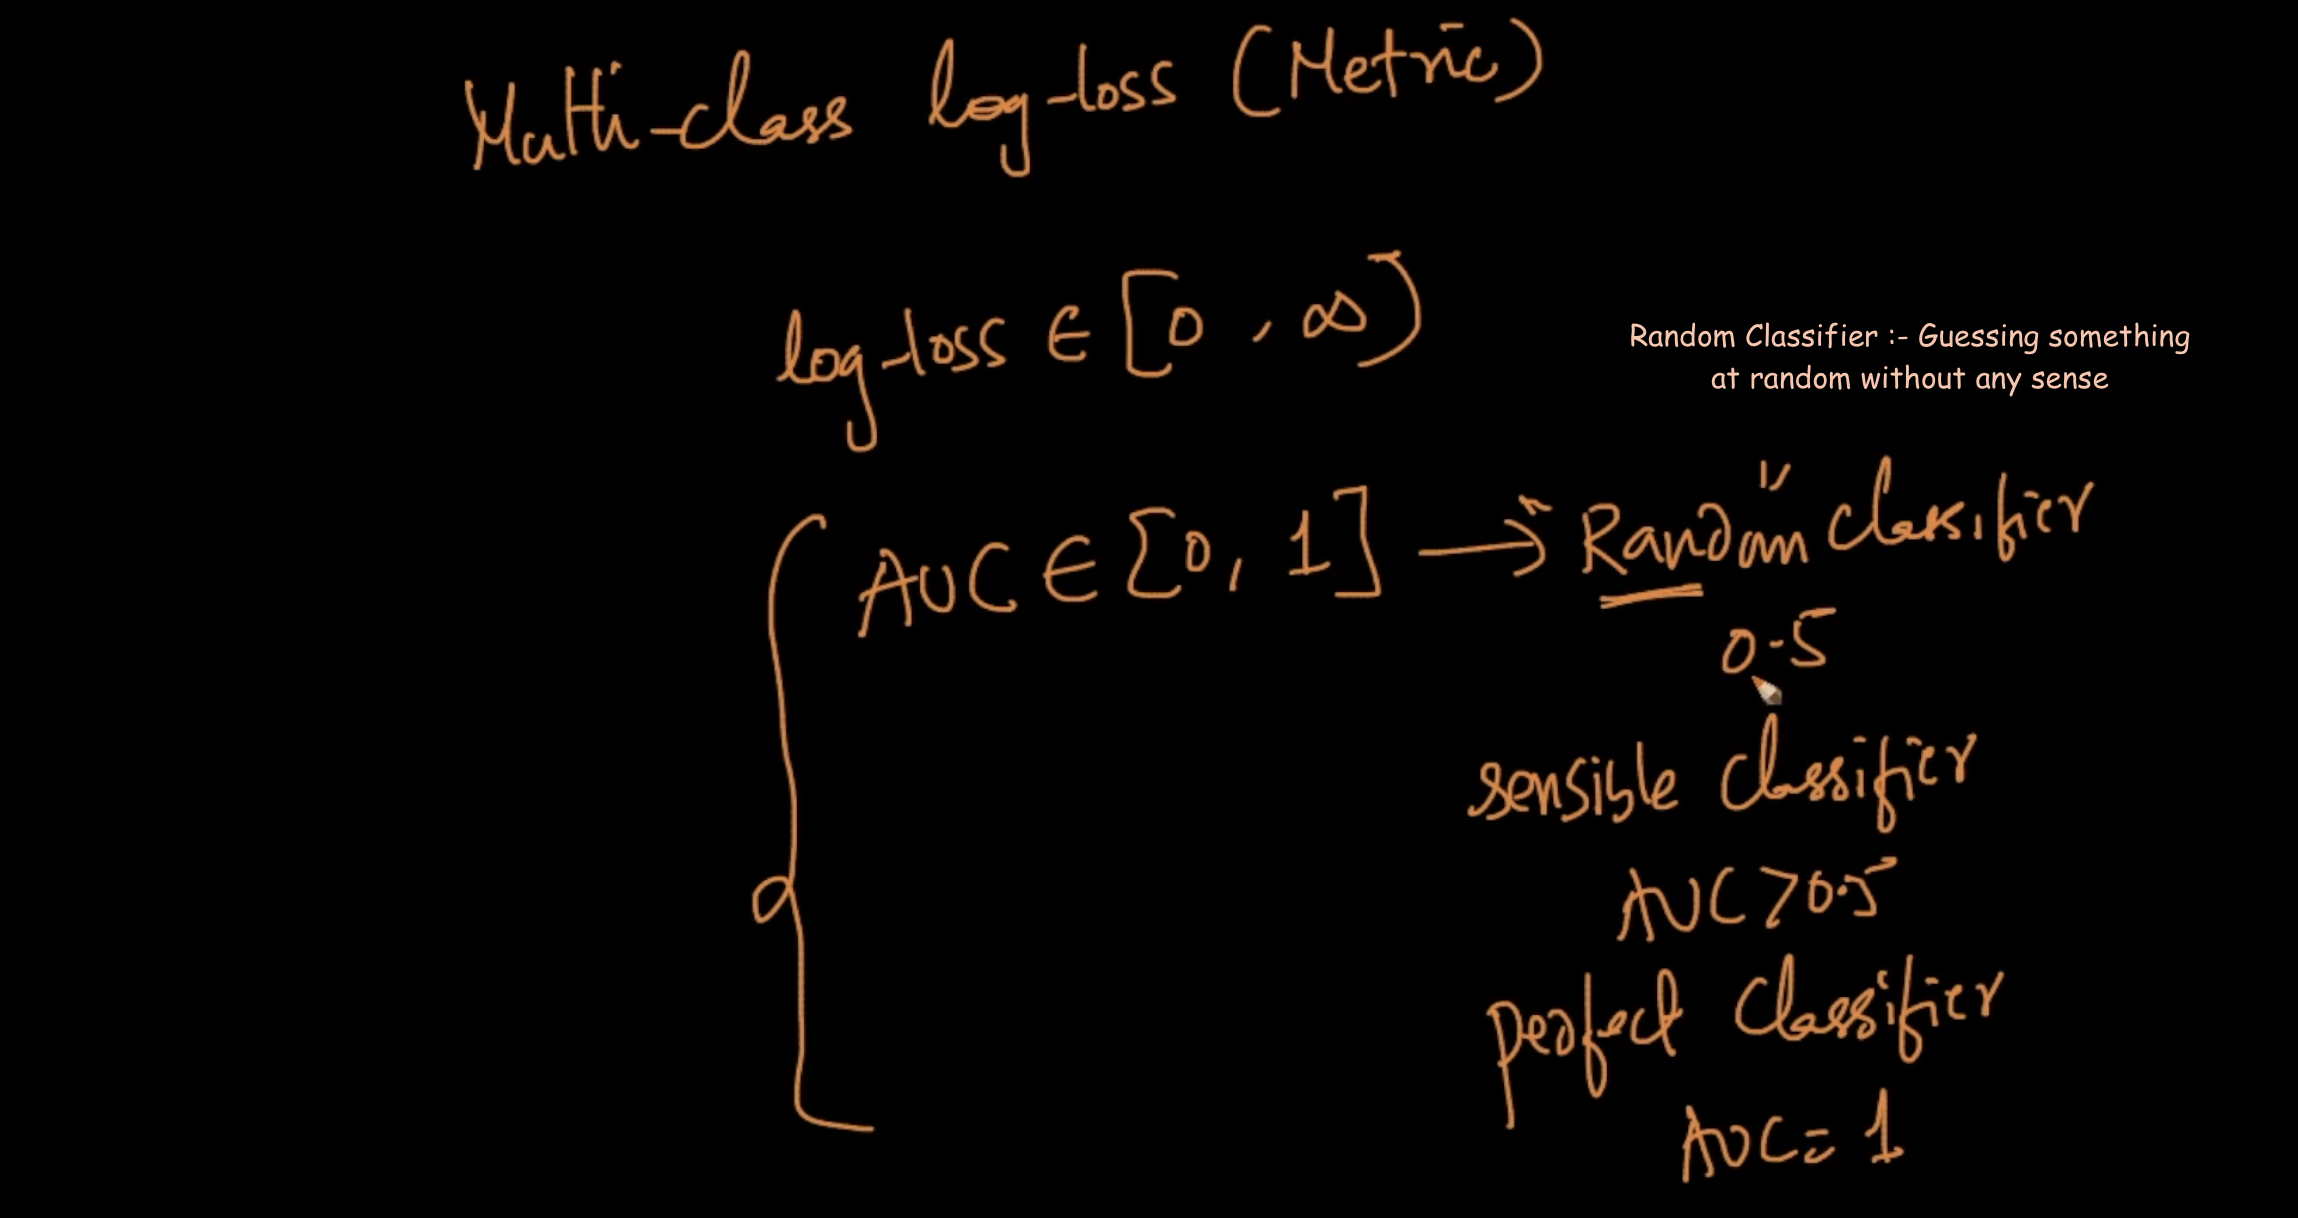 Multi-class log-loss (Metric)
log-loss ∈ [0, ∞)
Random Classifier :- Guessing something
at random without any sense
AUC ∈ [0, 1] → Random classifier
0.5
sensible classifier
AUC > 0.5
perfect classifier
AUC = 1